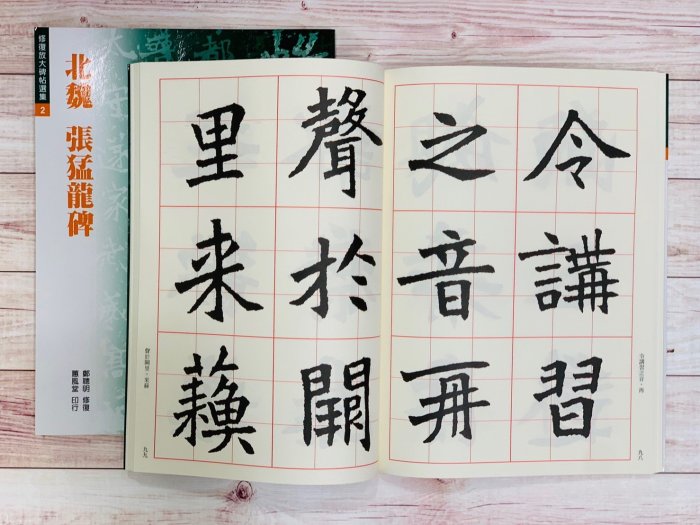 修復放大碑帖選集
2
北魏 張猛龍碑
鄭聰明 修復
蕙風堂 印行
令講習
之音再
聲於闕
里来蘓
令講習之音。再
九八
聲於闕里。來蘇
九九